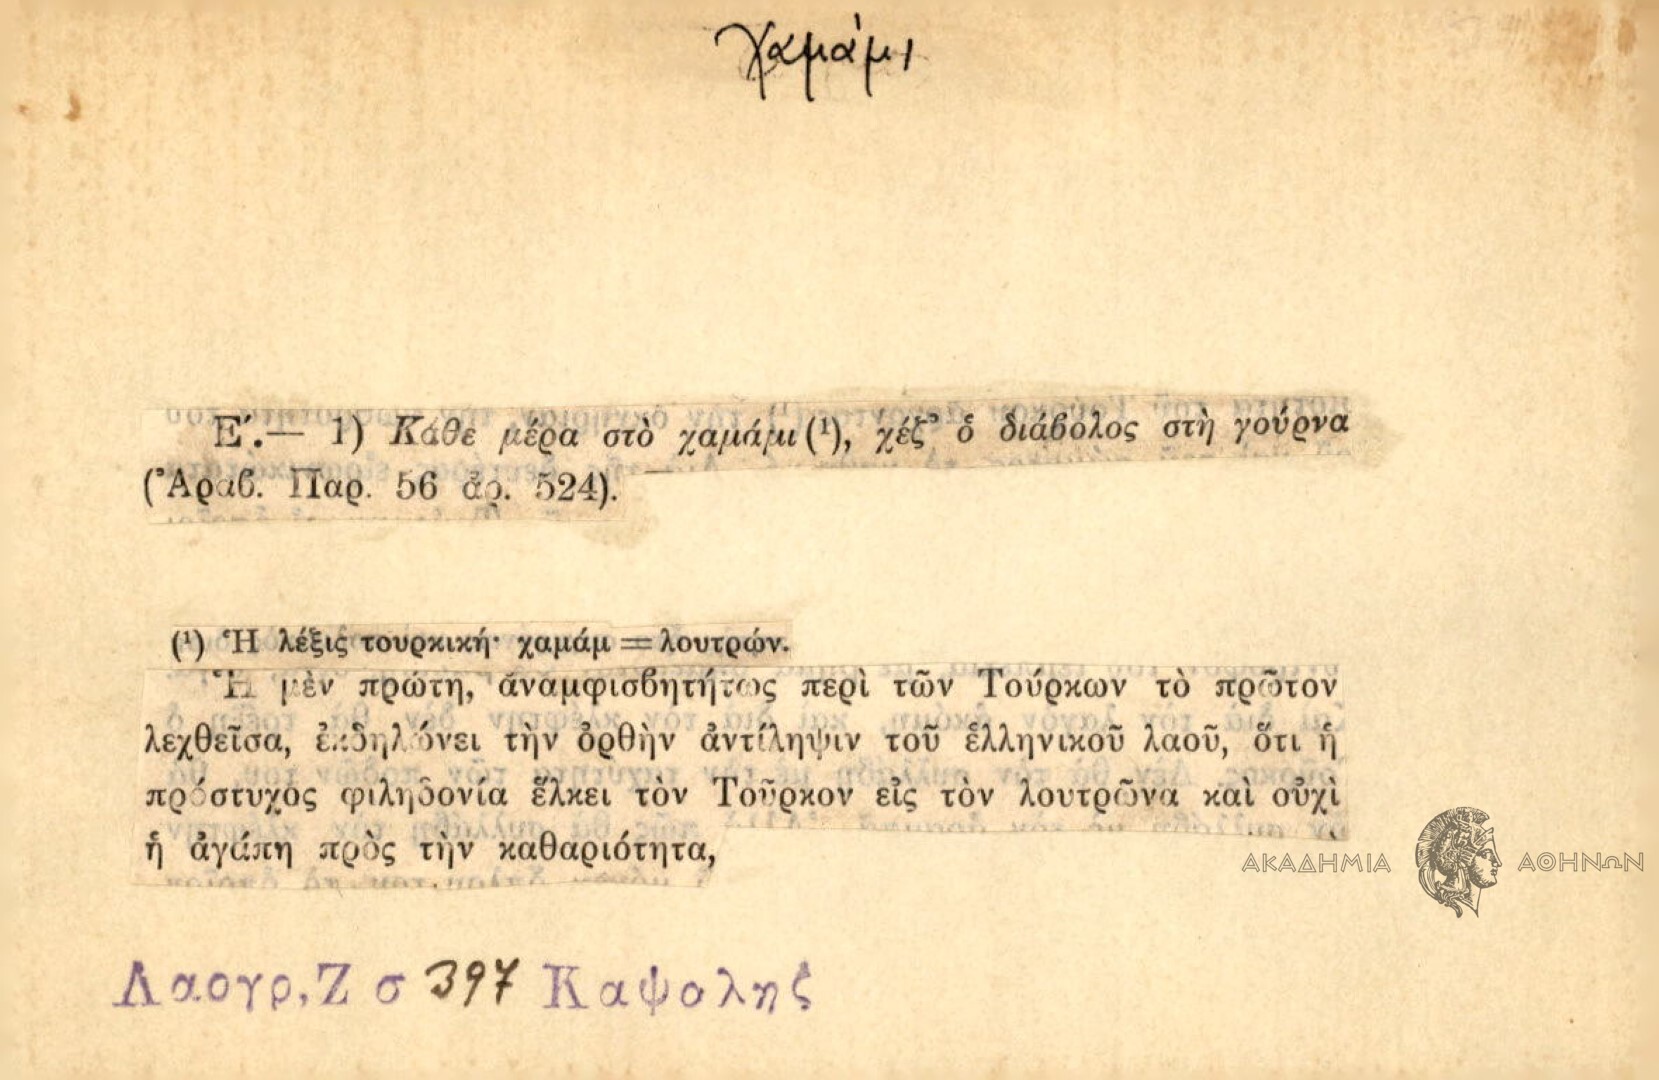 χαμάμι
Ε΄.— 1) Κάθε μέρα στὸ χαμάμι (¹), χέζ᾿ ὁ διάβολος στὴ γούρνα
(Ἀραβ. Παρ. 56 ἀρ. 524).
(¹) Ἡ λέξις τουρκική· χαμάμ = λουτρών.
Ἡ μὲν πρώτη, ἀναμφισβητήτως περὶ τῶν Τούρκων τὸ πρῶτον
λεχθεῖσα, ἐκδηλώνει τὴν ὀρθὴν ἀντίληψιν τοῦ ἑλληνικοῦ λαοῦ, ὅτι ἡ
πρόστυχος φιληδονία ἕλκει τὸν Τοῦρκον εἰς τὸν λουτρῶνα καὶ οὐχὶ
ἡ ἀγάπη πρὸς τὴν καθαριότητα,
ΑΚΑΔΗΜΙΑ ΑΘΗΝΩΝ
Λαογρ, Ζ σ 397 Καψαλης